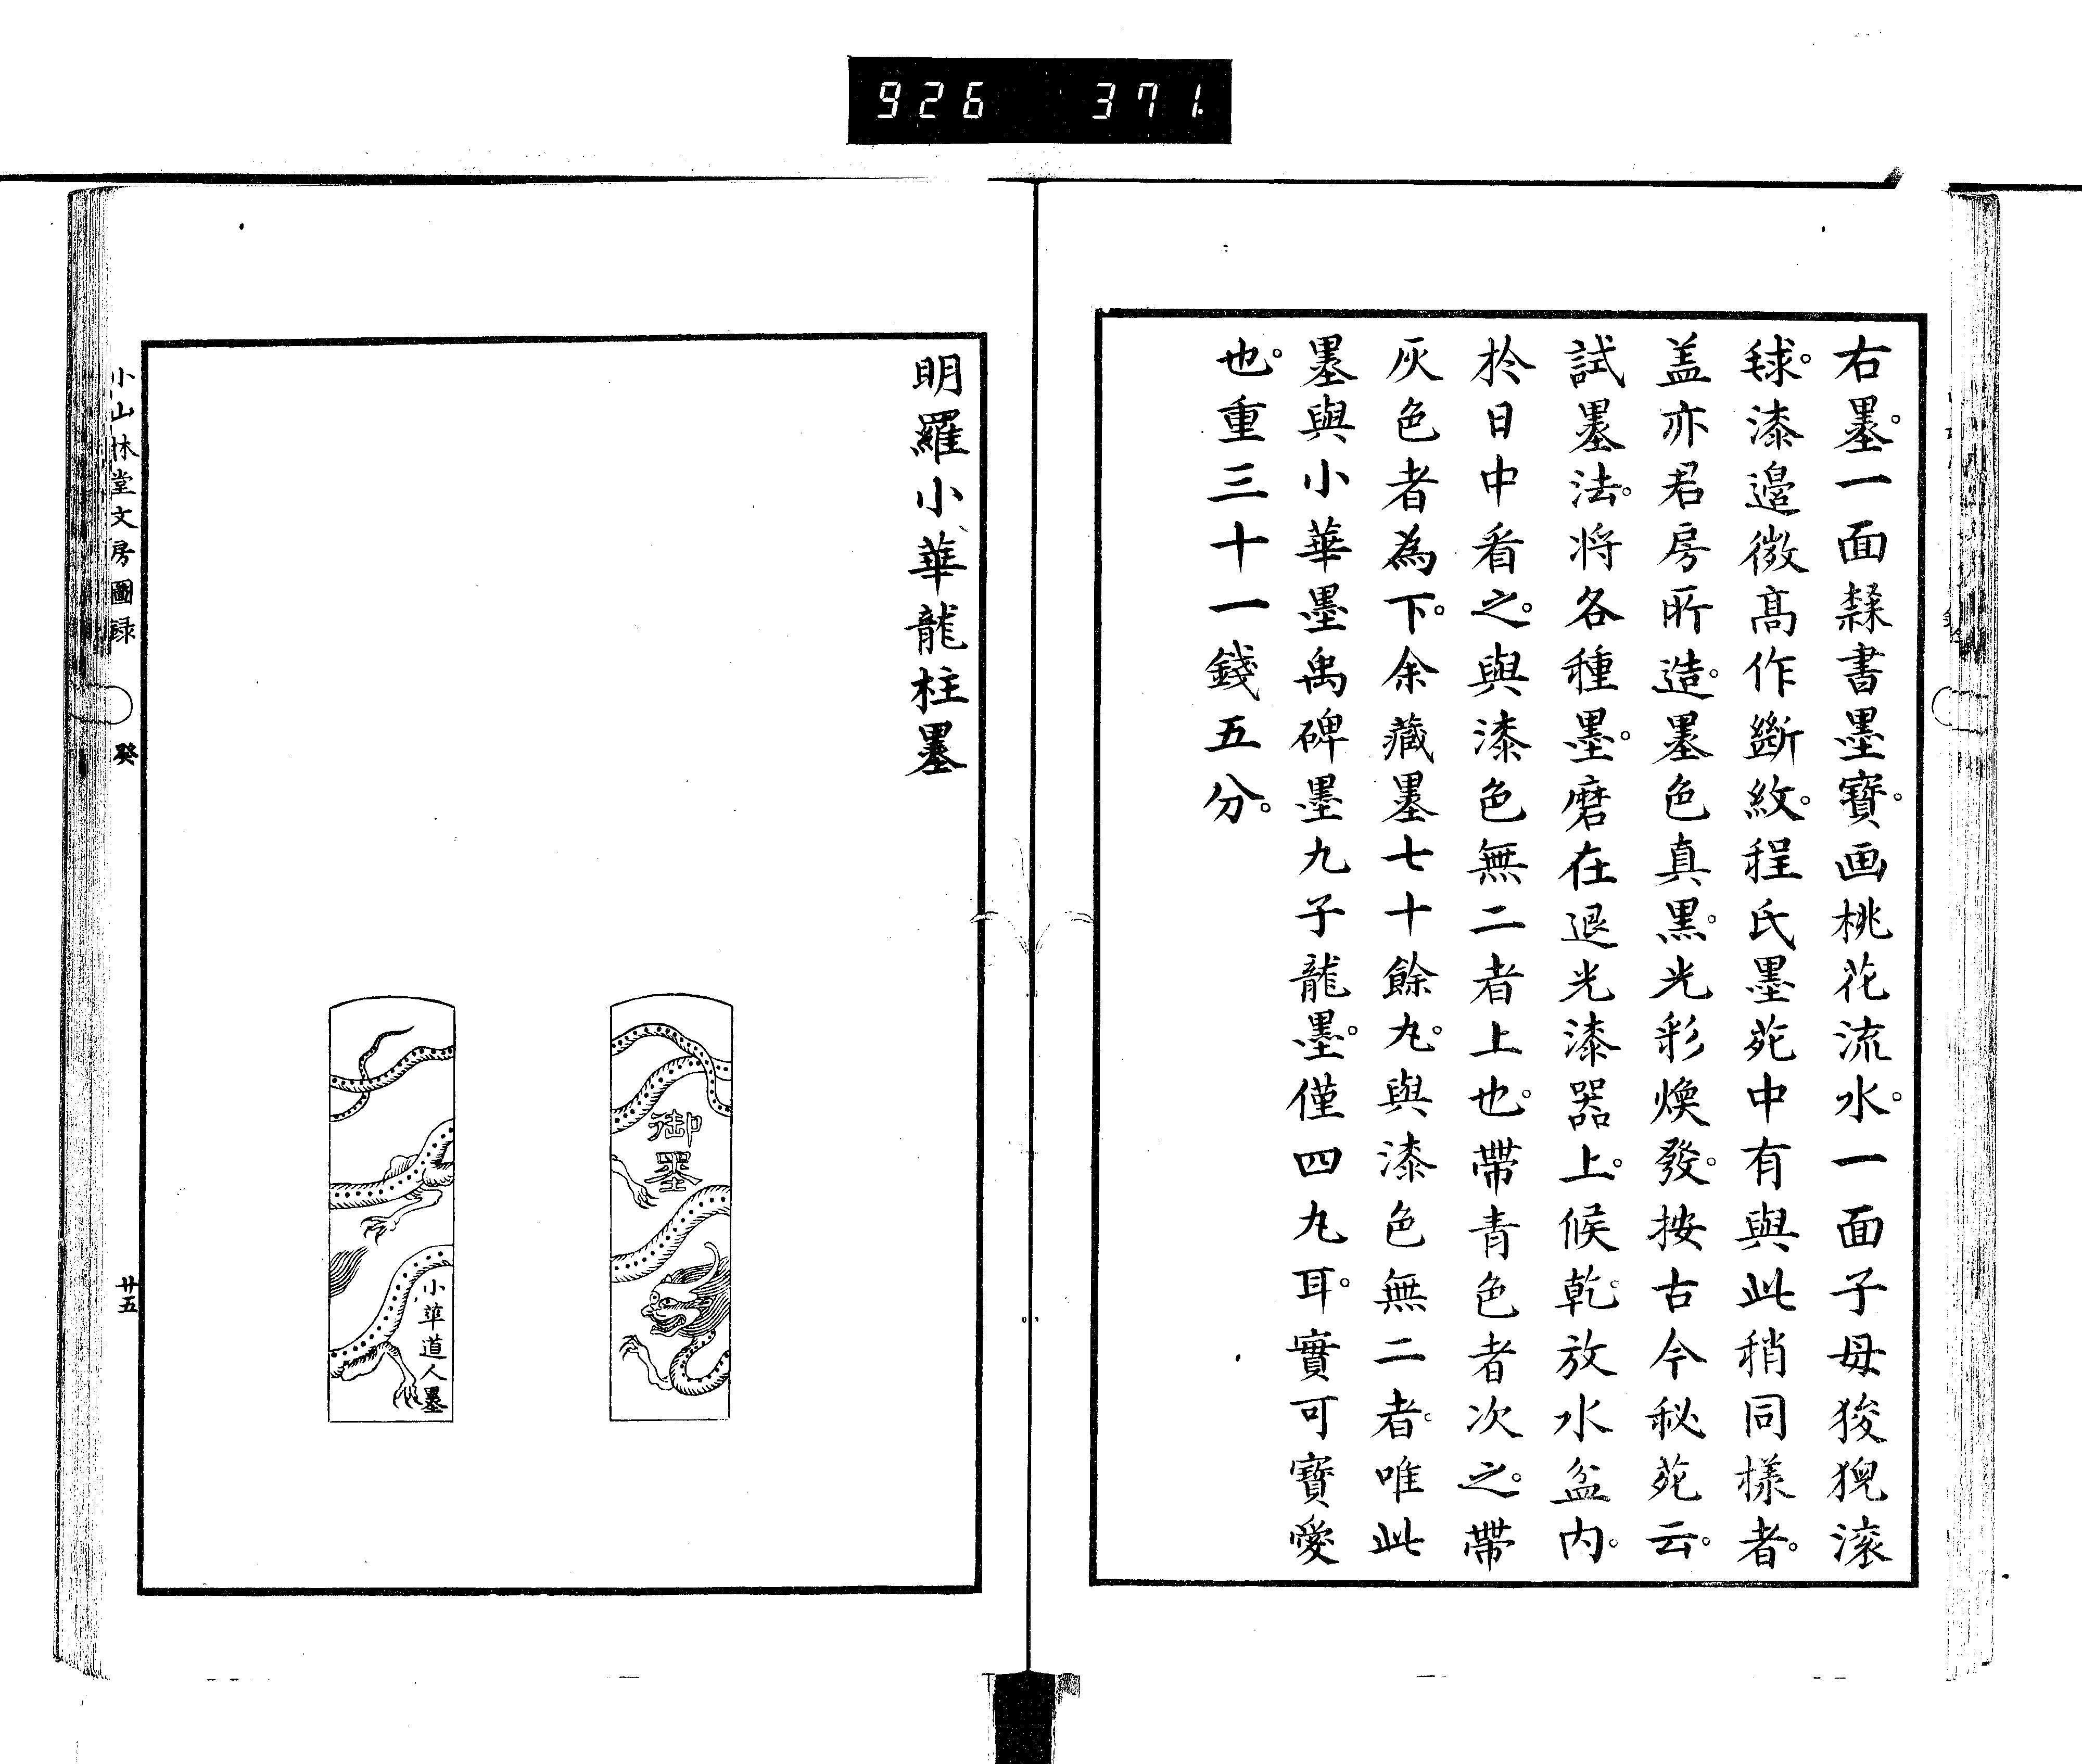 926 371
右墨。一面隸書墨寶。画桃花流水。一面子母狻猊滚
毬。漆邉微髙作斷紋。程氏墨苑中有與此稍同様者。
盖亦君房所造。墨色真黒。光彩煥發。按古今秘苑云。
試墨法。将各種墨。磨在退光漆器上。候乾。放水盆内。
於日中看之。與漆色無二者上也。帶青色者次之。帶
灰色者為下。余藏墨七十餘丸。與漆色無二者。唯此
墨與小華墨禹碑墨九子龍墨。僅四丸耳。實可寶愛
也。重三十一錢五分。
明羅小華龍柱墨
御墨
小華道人墨
小山林堂文房圖録
癸
廿五